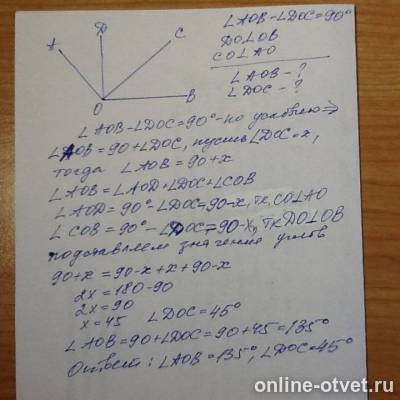 ∠AOB-∠DOC=90°
DO⊥OB
CO⊥AO
∠AOB-?
∠DOC-?
A
D
C
O
B
∠AOB-∠DOC=90°-по условию⇒
∠AOB=90+∠DOC, пусть ∠DOC=x,
тогда ∠AOB=90+x
∠AOB=∠AOD+∠DOC+∠COB
∠AOD=90°-∠DOC=90-x, т.к. CO⊥AO
∠COB=90°-∠DOC=90-x, тк DO⊥OB
подставляем значение углов
90+x=90-x+x+90-x
2x=180-90
2x=90
x=45 ∠DOC=45°
∠AOB=90+∠DOC=90+45=135°
Ответ: ∠AOB=135°, ∠DOC=45°
online-otvet.ru